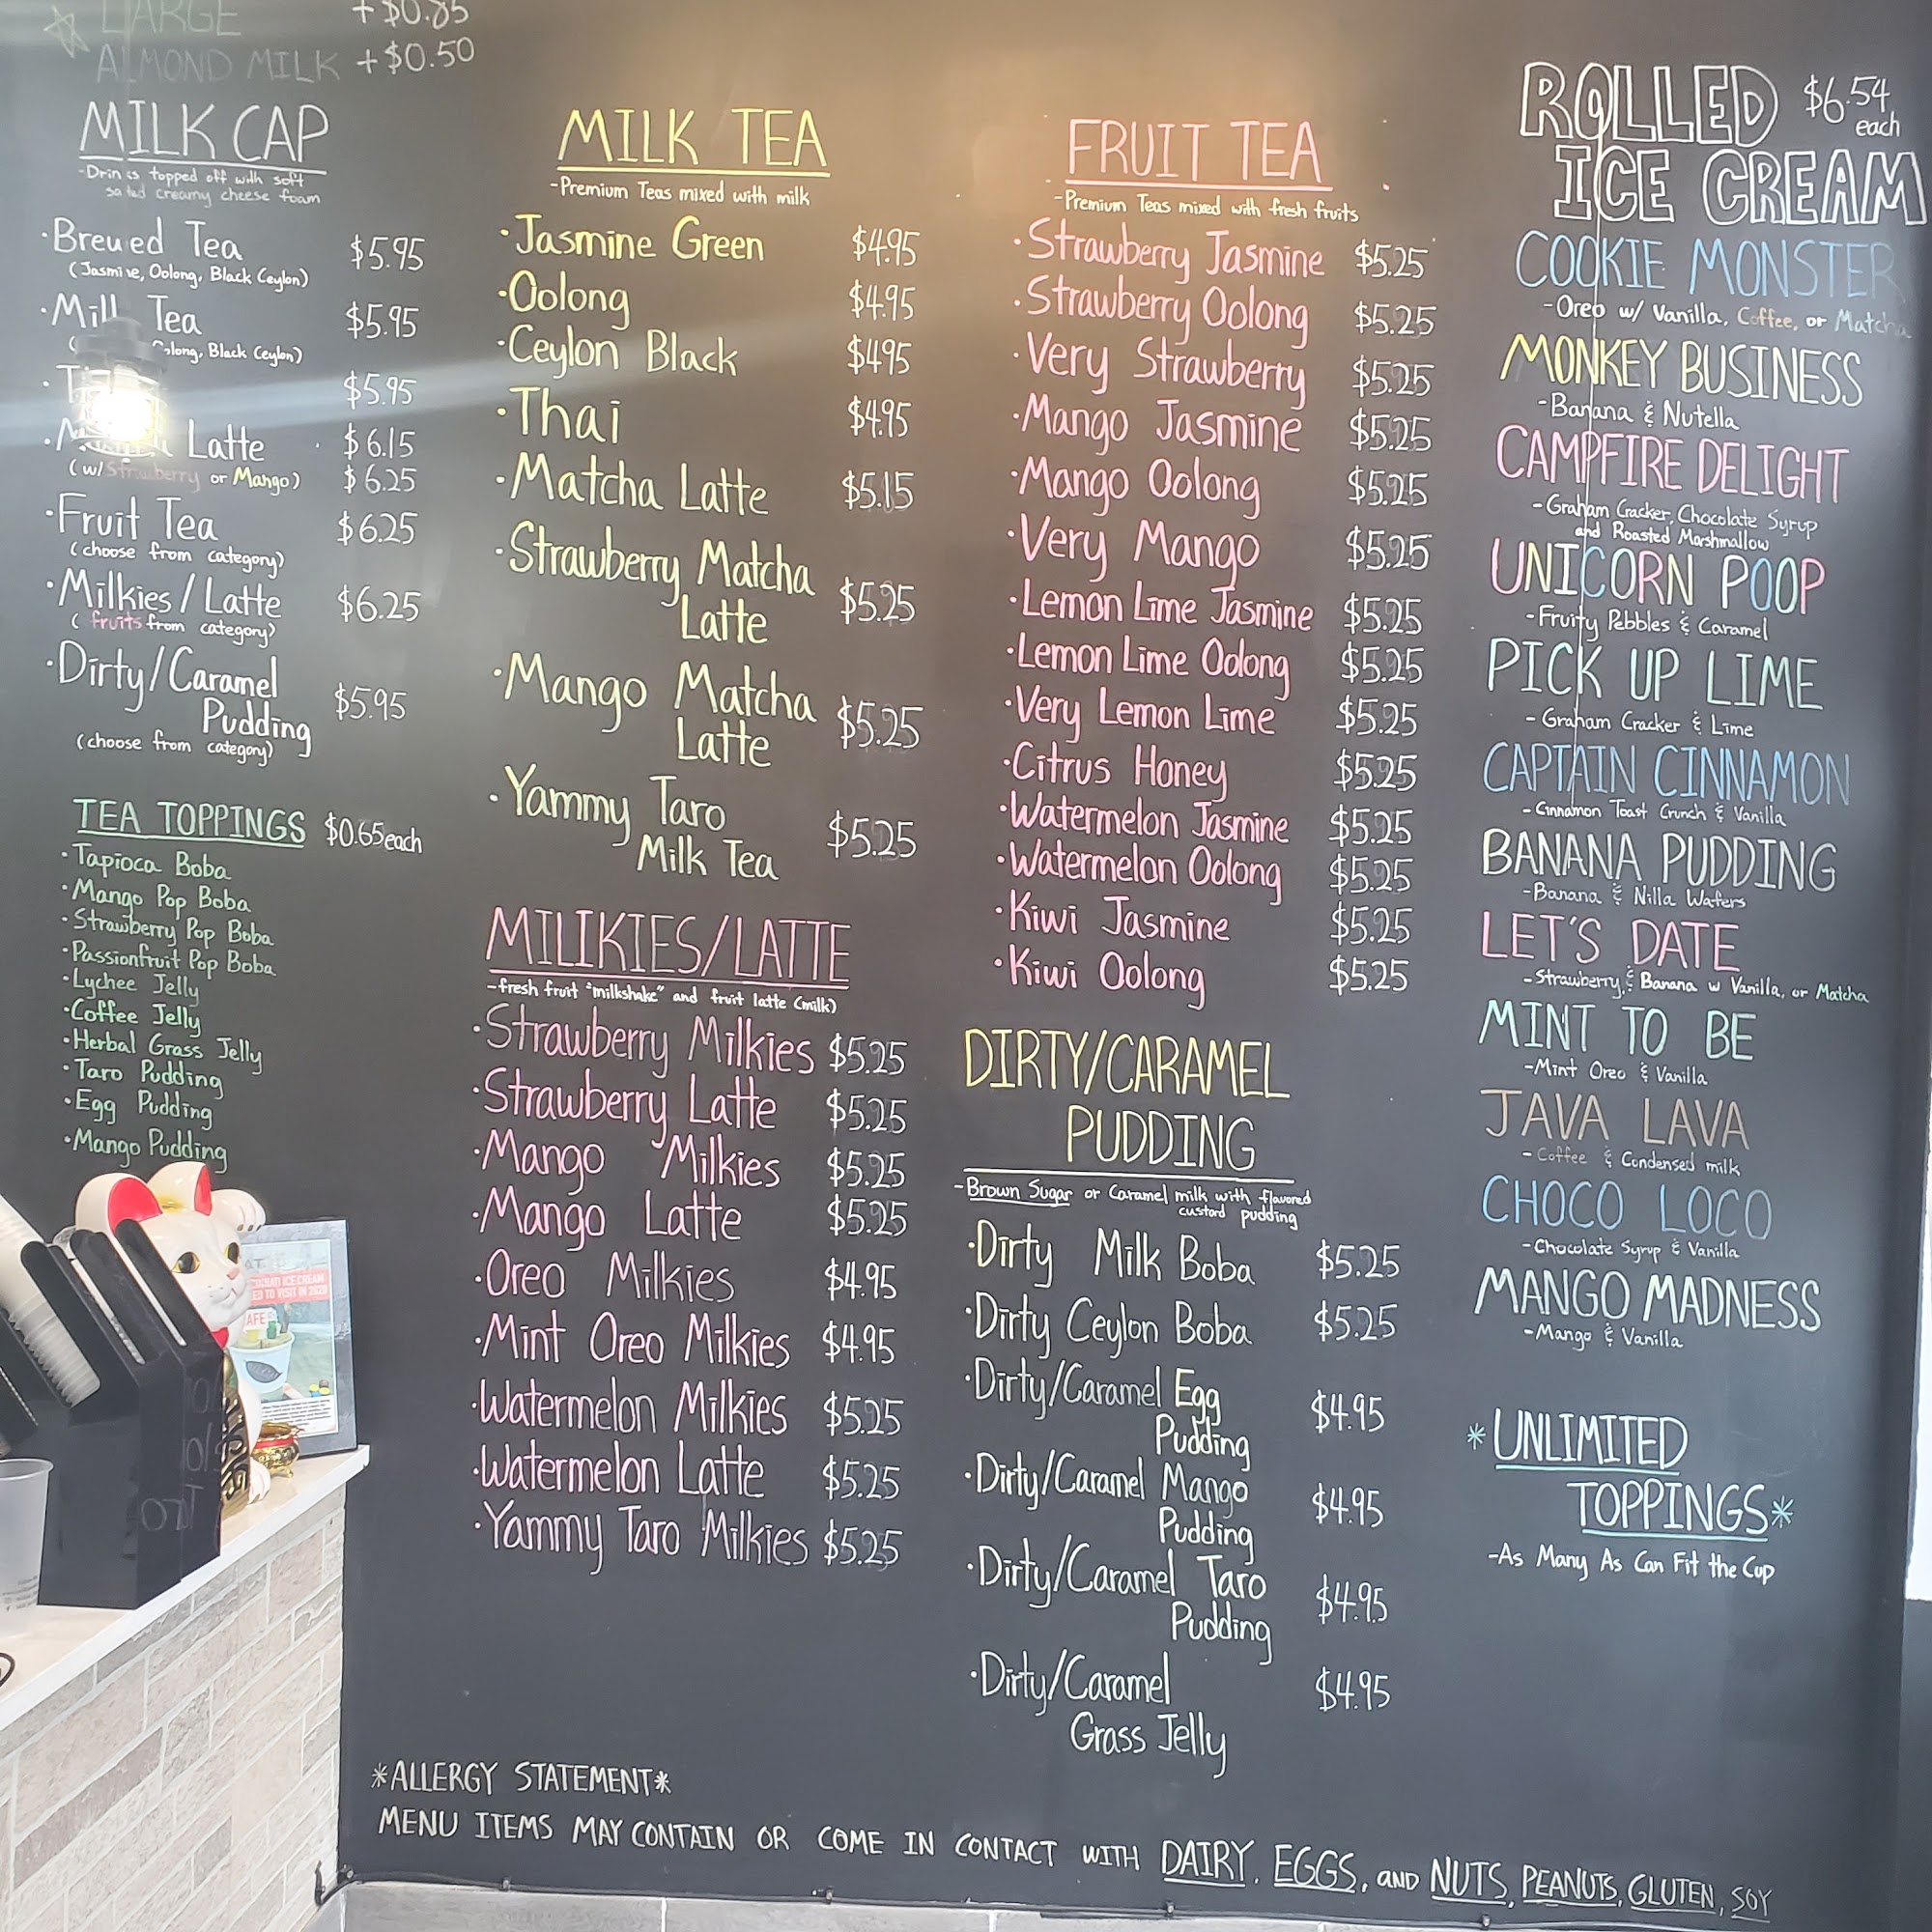 LARGE +$0.85
ALMOND MILK +$0.50
MILK CAP
-Drinks topped off with soft
salted creamy cheese foam
·Brewed Tea $5.95
(Jasmine, Oolong, Black Ceylon)
·Milk Tea $5.95
Oolong, Black Ceylon)
$5.95
Latte $6.15
(w/ Strawberry or Mango) $6.25
·Fruit Tea $6.25
(choose from category)
·Milkies/Latte $6.25
(fruits from category)
·Dirty/Caramel
Pudding $5.95
(choose from category)
TEA TOPPINGS $0.65 each
·Tapioca Boba
·Mango Pop Boba
·Strawberry Pop Boba
·Passionfruit Pop Boba
·Lychee Jelly
·Coffee Jelly
·Herbal Grass Jelly
·Taro Pudding
·Egg Pudding
·Mango Pudding
MILK TEA
-Premium Teas mixed with milk
·Jasmine Green $4.95
·Oolong $4.95
·Ceylon Black $495
·Thai $4.95
·Matcha Latte $5.15
·Strawberry Matcha
Latte $5.25
·Mango Matcha
Latte $5.25
·Yammy Taro
Milk Tea $5.25
MILIKIES/LATTE
-fresh fruit "milkshake" and fruit latte (milk)
·Strawberry Milkies $5.25
·Strawberry Latte $5.25
·Mango Milkies $5.25
·Mango Latte $5.25
·Oreo Milkies $4.95
·Mint Oreo Milkies $4.95
·Watermelon Milkies $5.25
·Watermelon Latte $5.25
·Yammy Taro Milkies $5.25
FRUIT TEA
-Premium Teas mixed with fresh fruits
·Strawberry Jasmine $5.25
·Strawberry Oolong $5.25
·Very Strawberry $5.25
·Mango Jasmine $5.25
·Mango Oolong $5.25
·Very Mango $5.25
·Lemon Lime Jasmine $5.25
·Lemon Lime Oolong $5.25
·Very Lemon Lime $5.25
·Citrus Honey $5.25
·Watermelon Jasmine $5.25
·Watermelon Oolong $5.25
·Kiwi Jasmine $5.25
·Kiwi Oolong $5.25
DIRTY/CARAMEL
PUDDING
-Brown Sugar or Caramel milk with flavored
custard pudding
·Dirty Milk Boba $5.25
·Dirty Ceylon Boba $5.25
·Dirty/Caramel Egg
Pudding $4.95
·Dirty/Caramel Mango
Pudding $4.95
·Dirty/Caramel Taro
Pudding $4.95
·Dirty/Caramel
Grass Jelly $4.95
ROLLED $6.54
ICE CREAM each
COOKIE MONSTER
-Oreo w/ Vanilla, Coffee, or Matcha
MONKEY BUSINESS
-Banana & Nutella
CAMPFIRE DELIGHT
-Graham Cracker, Chocolate Syrup
and Roasted Marshmallow
UNICORN POOP
-Fruity Pebbles & Caramel
PICK UP LIME
-Graham Cracker & Lime
CAPTAIN CINNAMON
-Cinnamon Toast Crunch & Vanilla
BANANA PUDDING
-Banana & Nilla Wafers
LET'S DATE
-Strawberry & Banana w Vanilla, or Matcha
MINT TO BE
-Mint Oreo & Vanilla
JAVA LAVA
-Coffee & Condensed milk
CHOCO LOCO
-Chocolate Syrup & Vanilla
MANGO MADNESS
-Mango & Vanilla
*UNLIMITED
TOPPINGS*
-As Many As Can Fit the Cup
*ALLERGY STATEMENT*
MENU ITEMS MAY CONTAIN OR COME IN CONTACT WITH DAIRY, EGGS, AND NUTS, PEANUTS, GLUTEN, SOY